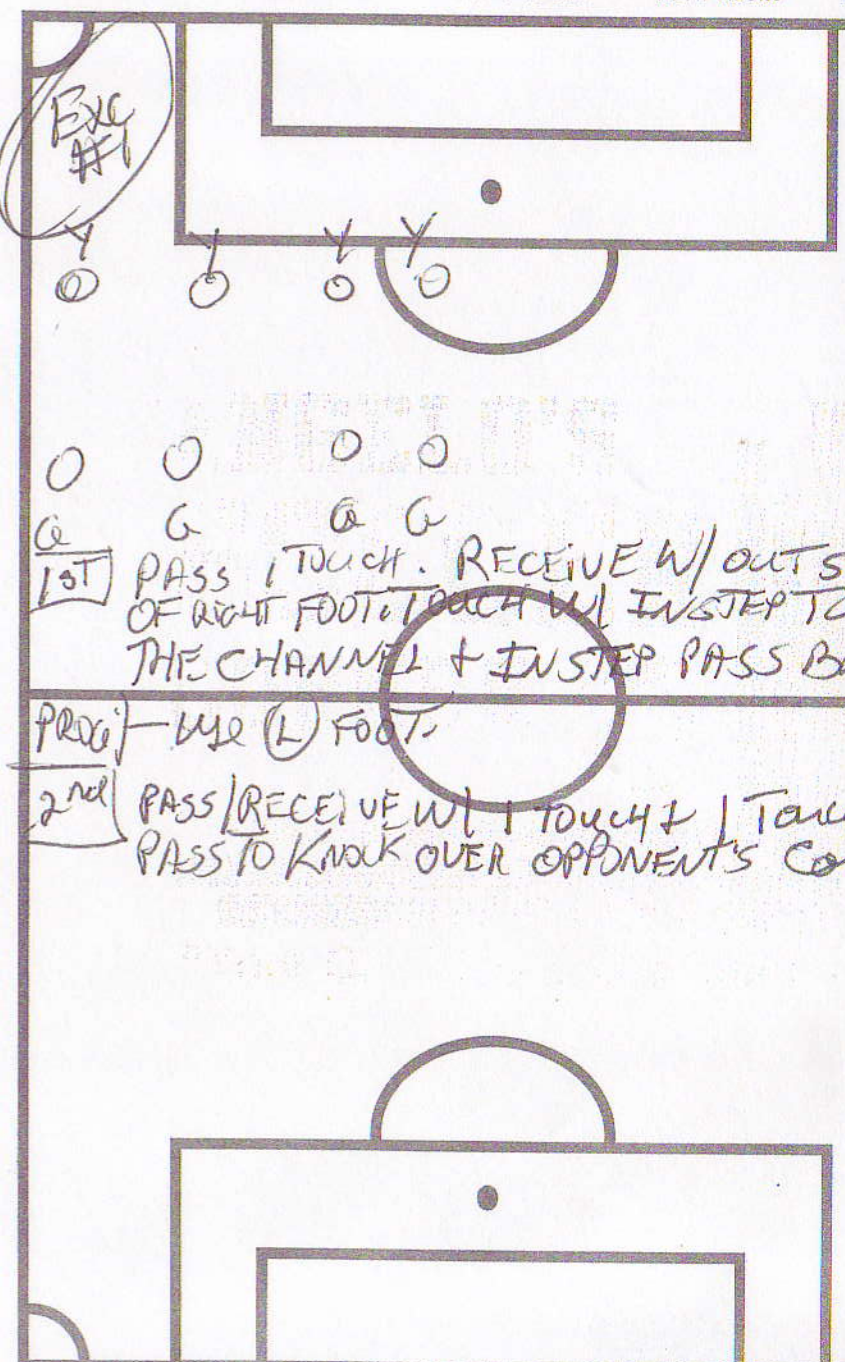 Exc
#1
Y Y Y Y
O O O O
O O O O
G G G G
1ST PASS 1 TOUCH. RECEIVE W/ OUTS
OF RIGHT FOOT. TOUCH W/ INSTEP TO
THE CHANNEL & INSTEP PASS BA
PROG - USE (L) FOOT.
2nd PASS/RECEIVE W/ 1 TOUCH & 1 TOUC
PASS TO KNOCK OVER OPPONENT'S CO